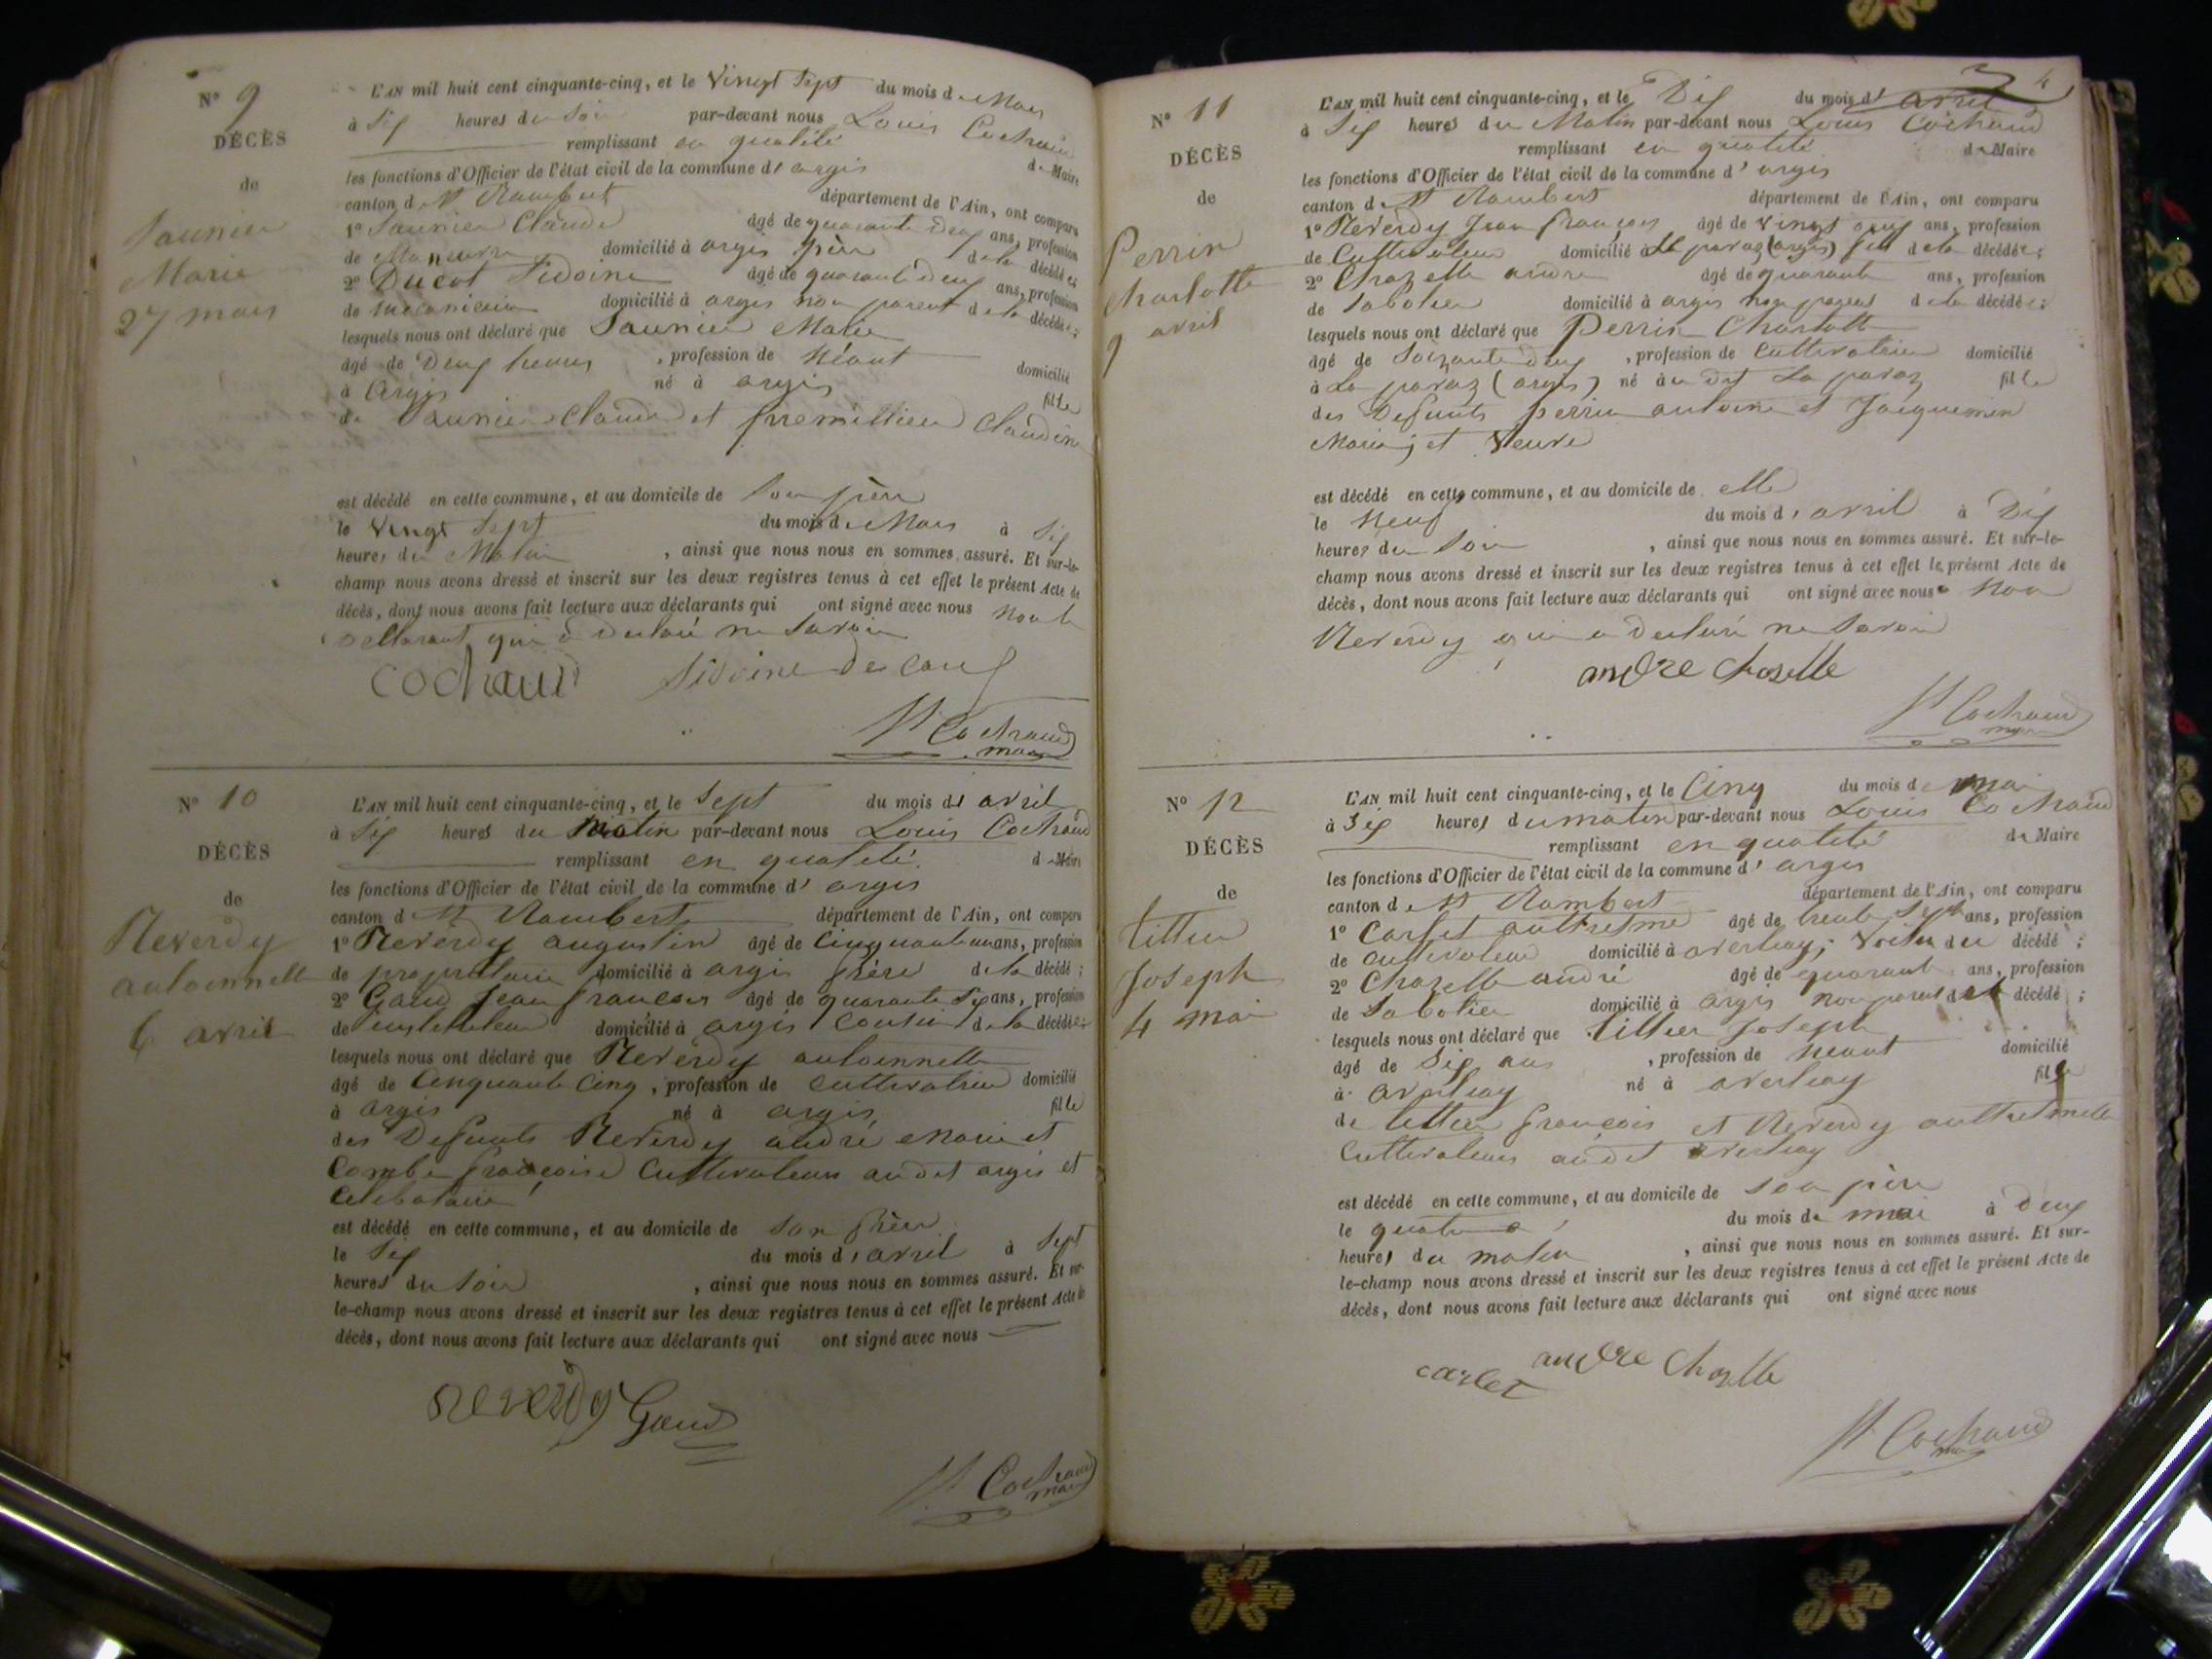 N° 9
DÉCÈS
de
Saunier
Marie
27 mars
L'AN mil huit cent cinquante-cinq, et le Vingt Sept du mois de Mars
à Six heures du Soir par-devant nous Louis Cochaud
remplissant en qualité de Maire
les fonctions d'Officier de l'état civil de la commune d' argis
canton de St Rambert département de l'Ain, ont comparu
1° Saunier Claude âgé de quarante deux ans, profession
de domicilié à argis père de la décédée;
2° Ducot Sidoine âgé de quarante deux ans, profession
de mécanicien domicilié à argis non parent de la décédée;
lesquels nous ont déclaré que Saunier Marie
âgé de Deux heures , profession de Néant domicilié
à Argis né à argis fille
de Saunier Claude et premillieu Claudine
est décédé en cette commune, et au domicile de Son père
le Vingt Sept du mois de Mars à Six
heures du Matin , ainsi que nous nous en sommes assuré. Et sur-le-
champ nous avons dressé et inscrit sur les deux registres tenus à cet effet le présent Acte de
décès, dont nous avons fait lecture aux déclarants qui ont signé avec nous non le
déclarant qui a déclaré ne Savoir
Cochaud
St Cochaud
maire
N° 10
DÉCÈS
de
Reverdy
antoinnette
6 avril
L'AN mil huit cent cinquante-cinq, et le Sept du mois d' avril
à Six heures du Matin par-devant nous Louis Cochaud
remplissant en qualité de Maire
les fonctions d'Officier de l'état civil de la commune d' argis
canton de St Rambert département de l'Ain, ont comparu
1° Reverdy augustin âgé de Cinquante un ans, profession
de propriétaire domicilié à argis frère de la décédé;
2° Gaud Jean françois âgé de quarante Six ans, profession
de instituteur domicilié à argis Cousin de la décédée;
lesquels nous ont déclaré que Reverdy antoinnette
âgé de Cinquante Cinq , profession de Cultivatrice domicilié
à argis né à argis fille
des Defunts Reverdy andré Marie et
Combe françoise Cultivateurs audit argis et
Celibataire
est décédé en cette commune, et au domicile de Son frère
le Six du mois d' avril à Sept
heures du Soir , ainsi que nous nous en sommes assuré. Et sur-
le-champ nous avons dressé et inscrit sur les deux registres tenus à cet effet le présent Acte de
décès, dont nous avons fait lecture aux déclarants qui ont signé avec nous
reverdy Gaud
St Cochaud
maire
4
N° 11
DÉCÈS
de
Perrin
Charlotte
9 avril
L'AN mil huit cent cinquante-cinq, et le Dix du mois d' avril
à Six heures du Matin par-devant nous Louis Cochaud
remplissant en qualité de Maire
les fonctions d'Officier de l'état civil de la commune d' argis
canton de St Rambert département de l'Ain, ont comparu
1° Reverdy Jean françois âgé de vingt ans, profession
de Cultivateur domicilié à La paraz (argis) fils de la décédée;
2° Chazelle andré âgé de quarante ans, profession
de Sabotier domicilié à argis non parent de la décédée;
lesquels nous ont déclaré que Perrin Charlotte
âgé de Soixante deux , profession de Cultivatrice domicilié
à La paraz (argis) né au dit La paraz fille
des Defunts perrin antoine et Jacquemin
Marie; et Veuve
est décédé en cette commune, et au domicile de elle
le Neuf du mois d' avril à Dix
heures du Soir , ainsi que nous nous en sommes assuré. Et sur-le-
champ nous avons dressé et inscrit sur les deux registres tenus à cet effet le présent Acte de
décès, dont nous avons fait lecture aux déclarants qui ont signé avec nous Non
Reverdy qui a declaré ne Savoir
andre chazelle
St Cochaud
maire
N° 12
DÉCÈS
de
littier
Joseph
4 mai
L'AN mil huit cent cinquante-cinq, et le Cinq du mois de mai
à Six heures du matin par-devant nous Louis Cochaud
remplissant en qualité de Maire
les fonctions d'Officier de l'état civil de la commune d' argis
canton de St Rambert département de l'Ain, ont comparu
1° Carlet anthelme âgé de trente Sept ans, profession
de Cultivateur domicilié à averliaz; Voisin du décédé;
2° Chazelle andré âgé de quarante ans, profession
de Sabotier domicilié à argis non parent du décédé;
lesquels nous ont déclaré que littier Joseph
âgé de Six ans , profession de Neant domicilié
à averliaz né à averliaz fils
de littier françois et Reverdy anthelmette
Cultivateurs audit averliaz
est décédé en cette commune, et au domicile de Son père
le quatre du mois de mai à deux
heures du matin , ainsi que nous nous en sommes assuré. Et sur-
le-champ nous avons dressé et inscrit sur les deux registres tenus à cet effet le présent Acte de
décès, dont nous avons fait lecture aux déclarants qui ont signé avec nous
carlet andre Chazelle
St Cochaud
maire